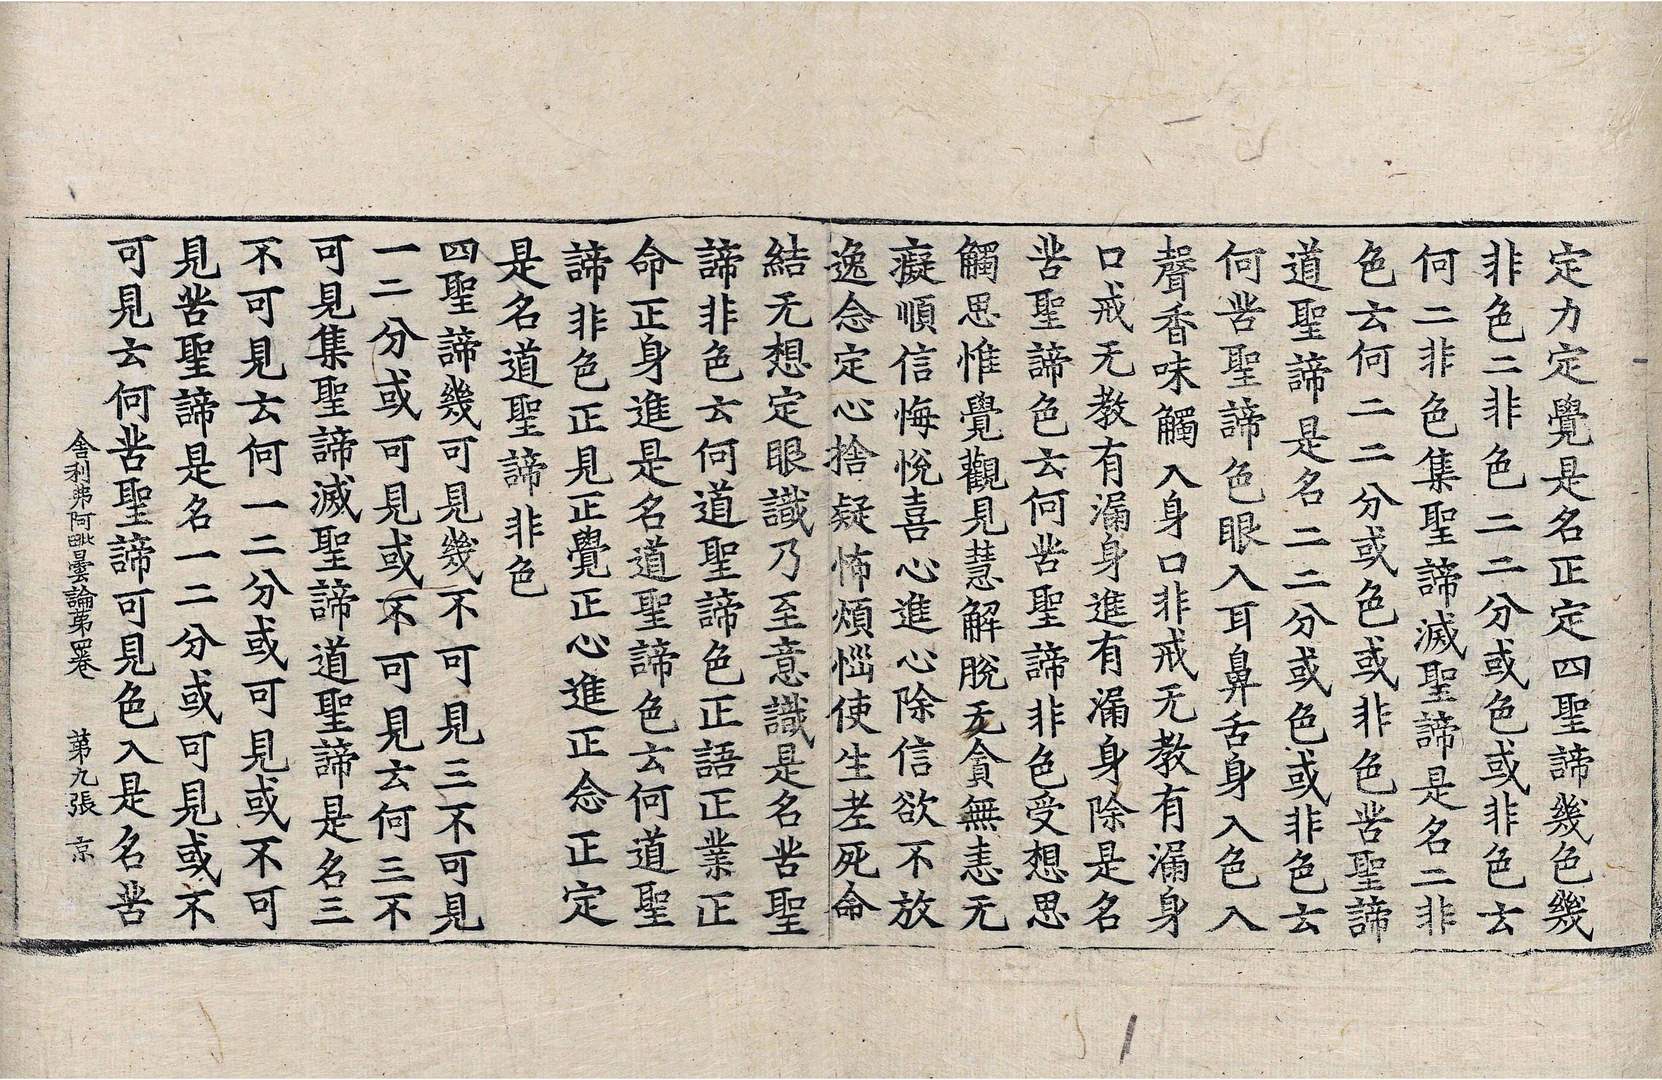 定力定覺是名正定四聖諦幾色幾
非色二非色二二分或色或非色云
何二非色集聖諦滅聖諦是名二非
色云何二二分或色或非色苦聖諦
道聖諦是名二二分或色或非色云
何苦聖諦色眼入耳鼻舌身入色入
聲香味觸入身口非戒无教有漏身
口戒无教有漏身進有漏身除是名
苦聖諦色云何苦聖諦非色受想思
觸思惟覺觀見慧解脫无貪無恚无
癡順信悔悅喜心進心除信欲不放
逸念定心捨疑怖煩惱使生老死命
結无想定眼識乃至意識是名苦聖
諦非色云何道聖諦色正語正業正
命正身進是名道聖諦色云何道聖
諦非色正見正覺正心進正念正定
是名道聖諦非色
四聖諦幾可見幾不可見三不可見
一二分或可見或不可見云何三不
可見集聖諦滅聖諦道聖諦是名三
不可見云何一二分或可見或不可
見苦聖諦是名一二分或可見或不
可見云何苦聖諦可見色入是名苦
舍利弗阿毗曇論第四卷 第九張 京